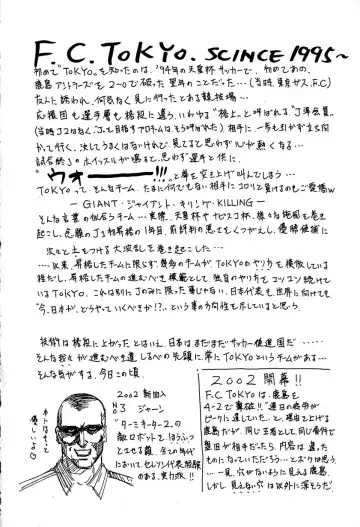 F.C.TOKYO. SCINCE 1995~
初めて"TOKYO"を知ったのは、'94年の天皇杯サッカーで、初めてあの、
鹿島アントラーズを2-0で破った翌年のことだった…(当時、東京ガス.F.C)
友人に誘われ、何気なく見に行ったとある競技場…
応援団も選手層も格段に違う、いわゆる"格上"と呼ばれる『J準会員』
(当時J2はなく、Jって目指すアマチームはそう呼ばれた)相手に、一歩も引かず立ち向
かって行く。決してうまくはないけれど、見てると思わず心が熱くなる…
試合終了のホイッスルが鳴ると、思わず選手と供に、
"ウォーーー!!!"
と拳を突き上げ叫んでしまう…
TOKYOって、そんなチーム。たまに何でもない相手にコロリと負けるのもご愛嬌w
― GIANT・ジャイアント・キリング・KILLING ―
そんな言葉の似合うチーム…実際、天皇杯やナビスコ杯、様々な地園を巻き
起こし、念願のJ1初昇格の1年目、前評判の悪さもくつがえし、優勝候補に
次々と土をつける大波乱を巻き起こした…
……以来、昇格したチームに限らず幾多のチームがTOKYOのやり方を模倣している
様だし、昇格したチームの進むべき模範として、独自のやり方でコツコツ続けて
いるTOKYO。これは別にJのみに限った事じゃない。日本代表も世界に向けても
"今、日本が、どうやっていくべきか!?"、という事の方向性を示してると思う。
技術は格段に上がったとはいえ、日本はまだまだサッカー後進国だ…
そんな我々が進むべき道しるべの先頭に、常にTOKYOというチームがある…
そんな気がする、今日この頃
ホントはもっと優しいよ
2002 新加入
NO 3 ジャーン
"ターミネーター2の
敵ロボットを、ほうふつ
とさせる顔。今どの時代
においてセレソン代表経験
のある、実力派!!
2002 開幕!!
F.C TOKYOは、鹿島を
4-2で撃破!!"連日の疲労が
ピークに達していた"と、理由を上げる
鹿島だが、同じ王者として同じ条件で
磐田が相手だったら、内容は違った
ものになっていただろう…とボクは思う
…一見、穴がないように見える鹿島、
しかし見えない穴は以外に深そうだ